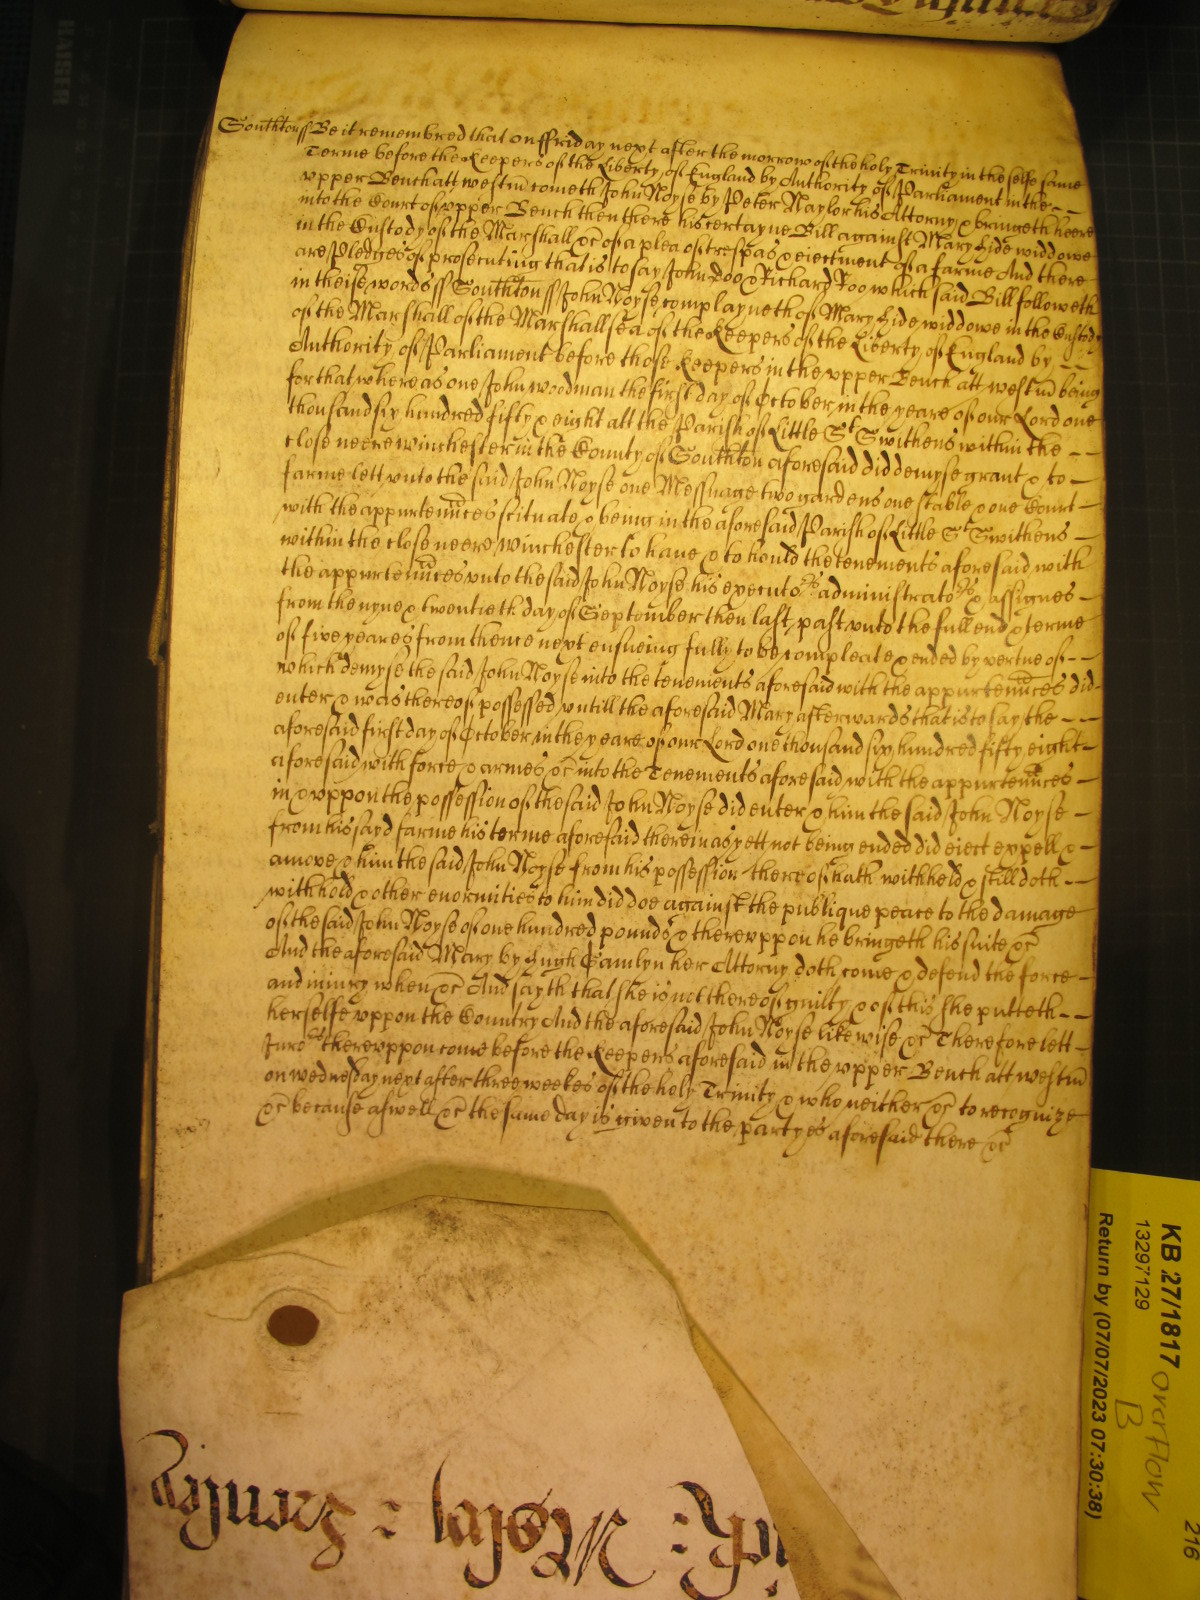 Southton ss Be it remembred that on ffriday next after the morrow of the holy Trinity in the selfe same
Terme before the Keepers of the Liberty of England by Authority of Parliament in the --
vpper Bench att Westm̄ cometh John Noyse by Peter Naylor his Attorny & bringeth heere
into the Court of vpper Bench then there his certayne Bill against Mary Hide widdowe
in the Custody of the Marshall &c̄ of a plea of trespas & eiectment of a farme And there
are Pledges of prosecuting that is to say John Doo & Richard Roo which said Bill followeth
in theise words ss Southton ss John Noyse complayneth of Mary Hide widdowe in the Custody
of the Marshall of the Marshallsea of the Keepers of the Liberty of England by --
Authority of Parliament before those Keepers in the vpper Bench att Westm̄ being
for that whereas one John Woodman the first day of October in the yeare of our Lord one
thousand six hundred fifty & eight att the Parish of Little St Swithens within the --
close neere Winchester in the County of Southton aforesaid did demyse grant & to -
farme lett vnto the said John Noyse one Messuage two gardens one stable & one Court -
with the appurteñnces scituate & being in the aforesaid Parish of Little St Swithens -
within the close neere Winchester to haue & to hould the tenements aforesaid with
the appurteñnces vnto the said John Noyse his executors administrators & assignes -
from the nyne & twentieth day of September then last past vnto the full end & terme
of five yeares from thence next ensueing fully to be compleate & ended by vertue of --
which demyse the said John Noyse into the tenements aforesaid with the appurteñnces did -
enter & was thereof possessed vntill the aforesaid Mary afterwards that is to say the --
aforesaid first day of October in the yeare of our Lord one thousand six hundred fifty eight -
aforesaid with force & armes &c̄ into the Tenements aforesaid with the appurteñnces -
in & vppon the possession of the said John Noyse did enter & him the said John Noyse -
from his sayd farme his terme aforesaid therein as yett not being ended did eiect expell & -
amove & him the said John Noyse from his possession thereof hath withheld & still doth --
withhold & other enormities to him did doe against the publique peace to the damage
of the said John Noyse of one hundred pounds & therevppon he bringeth his suite &c̄
And the aforesaid Mary by Hugh Camlyn her Attorny doth come & defend the force -
and iniury when &c̄ And sayth that she is not thereof guilty & of this she putteth --
herselfe vppon the Country And the aforesaid John Noyse likewise &c̄ Therefore lett -
Jurors therevppon come before the Keepers aforesaid in the vpper Bench att Westm̄
on wednesday next after three weekes of the holy Trinity & who neither &c̄ to recognize
&c̄ because aswell &c̄ the same day is given to the partyes aforesaid there &c̄
KB 27/1817 overflow
13297129 B
Return by (07/07/2023 07:30:38)
216